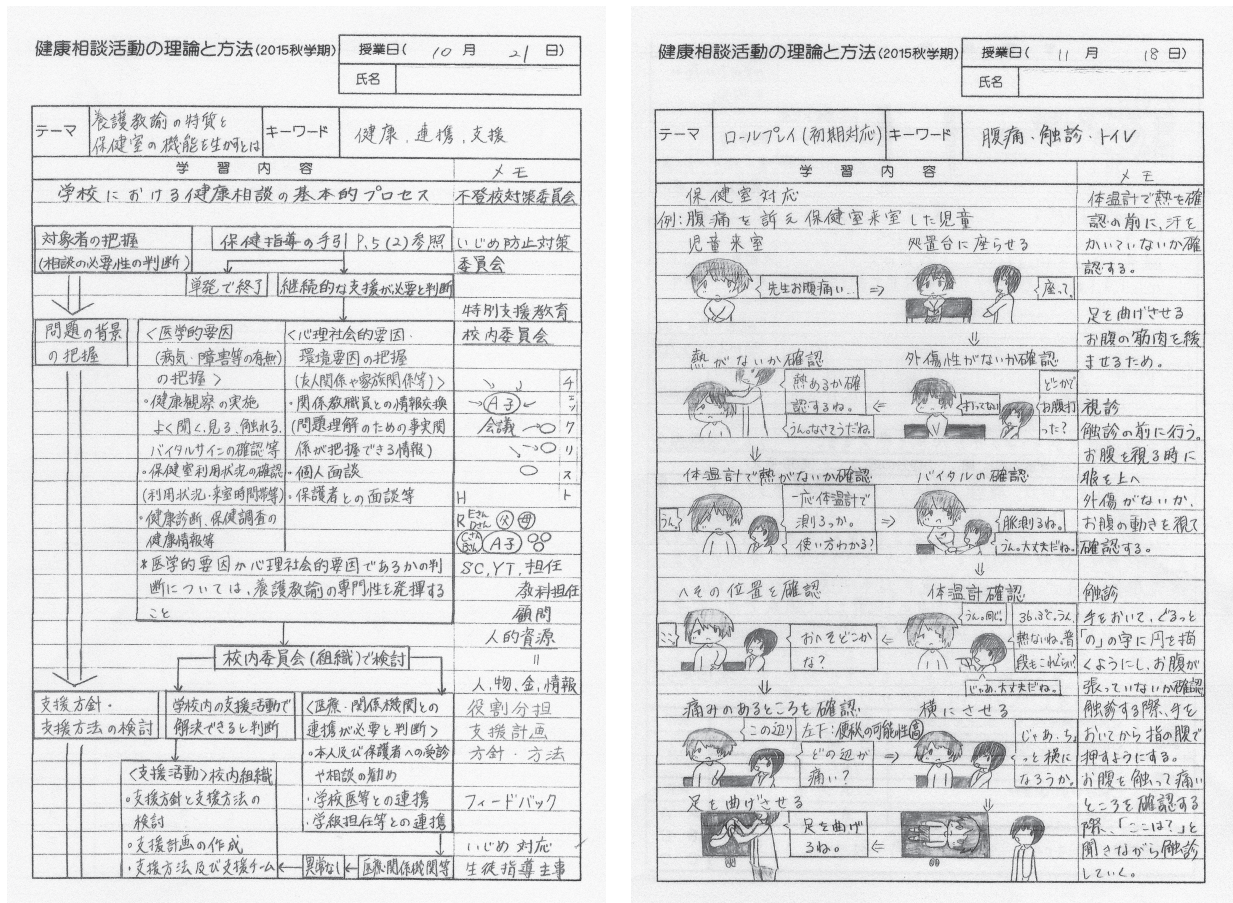 健康相談活動の理論と方法(2015秋学期)
授業日( 10 月 21 日)
氏名
テーマ
養護教諭の特質と
保健室の機能を生かすとは
キーワード
健康、連携、支援
学習内容
メモ
学校における健康相談の基本的プロセス
対象者の把握
(相談の必要性の判断)
保健指導の手引 P.5(2)参照
単発で終了
継続的な支援が必要と判断
問題の背景
の把握
<医学的要因
(病気・障害等の有無)
の把握>
・健康観察の実施
よく聞く、見る、触れる、
バイタルサインの確認等
・保健室利用状況の確認
(利用状況・来室時間帯等)
・健康診断、保健調査の
健康情報等
<心理社会的要因・
環境要因の把握
(友人関係や家族関係等)>
・関係教職員との情報交換
(問題理解のための事実関
係が把握できる情報)
・個人面談
・保護者との面談等
*医学的要因か心理社会的要因であるかの判
断については、養護教諭の専門性を発揮する
こと
校内委員会(組織)で検討
支援方針・
支援方法の検討
学校内の支援活動で
解決できると判断
<医療・関係機関との
連携が必要と判断>
・本人及び保護者への受診
や相談の勧め
・学校医等との連携
・学級担任等との連携
<支援活動>校内組織
・支援方針と支援方法の
検討
・支援計画の作成
・支援方法及び支援チーム
異常なし
医療関係機関等
不登校対策委員会
いじめ防止対策
委員会
特別支援教育
校内委員会
A子
会議
H
R
Eさん
Dさん
父
母
Cさん
Bさん
A子
SC,YT,担任
教科担任
顧問
人的資源
=
人、物、金、情報
役割分担
支援計画
方針・方法
フィードバック
いじめ対応
生徒指導主事
健康相談活動の理論と方法(2015秋学期)
授業日( 11 月 18 日)
氏名
テーマ
ロールプレイ(初期対応)
キーワード
腹痛・触診・トイレ
学習内容
メモ
保健室対応
例:腹痛を訴え保健室来室した児童
児童来室
処置台に座らせる
先生お腹痛い…
座って。
熱がないか確認
外傷性がないか確認
熱あるか確
認するね。
うん。なさそうだね。
打ってない
どこかで
お腹打
った?
体温計で熱がないか確認
バイタルの確認
うん
一応体温計で
測ろっか。
使い方わかる?
脈測るね。
うん。大丈夫だね。
へその位置を確認
体温計確認
ここ
おへそどこか
な?
うん。同じ。
36.5℃。うん、
熱ないね。普
段もこれぐらい?
じゃあ、大丈夫だね。
痛みのあるところを確認
横にさせる
この辺り
左下:便秘の可能性高
どの辺が
痛い?
じゃあ、ち
ょっと横に
なろうか。
足を曲げさせる
足を曲げ
るね。
体温計で熱を確
認の前に、汗を
かいていないか確
認する。
足を曲げさせる
お腹の筋肉を緩
ませるため。
視診
触診の前に行う。
お腹を視る時に
服を上へ
外傷がないか、
お腹の動きを視て
確認する。
触診
手をおいて、ぐるっと
「の」の字に円を描
くようにし、お腹が
張っていないか確認
触診する際、手を
おいてから指の腹で
押すようにする。
お腹を触って痛い
ところを確認する
際、「ここは?」と
聞きながら触診
していく。